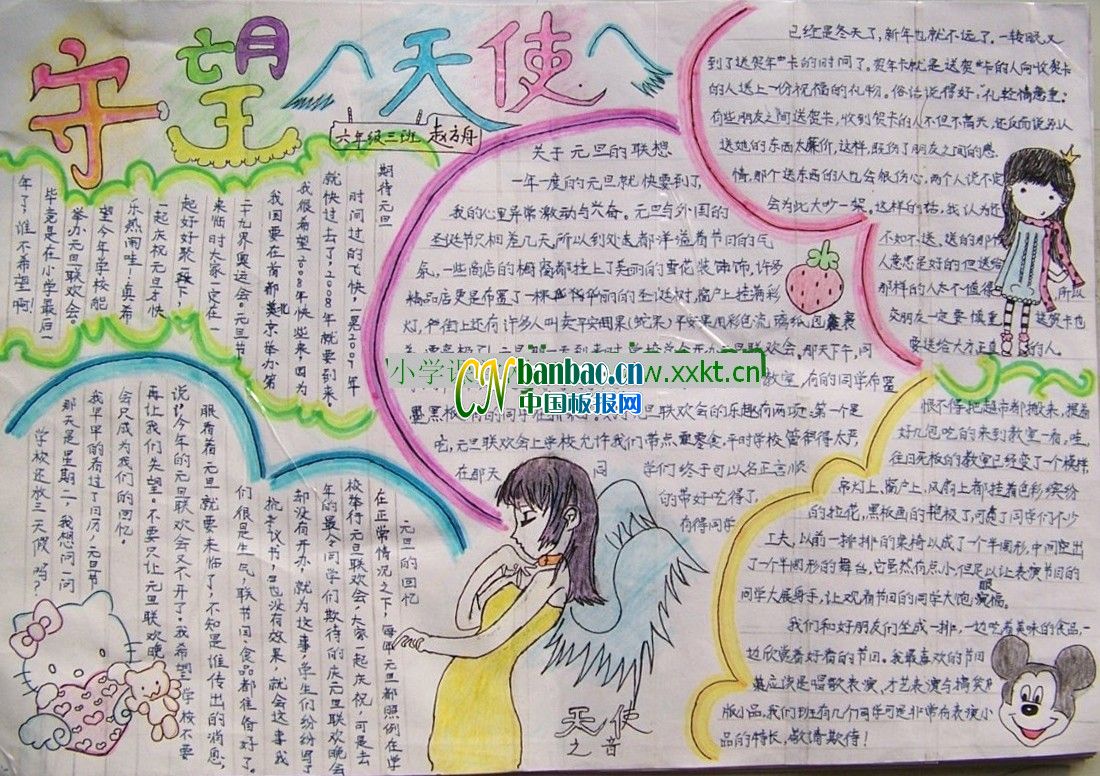 守望天使
六年级三班 赵方舟
期待元旦
时间过的飞快,一晃2007年
就快过去了,2008年就要到来。
我很希望2008年快些来因为
我国要在首都北京举办第
二十九界奥运会。元旦节
来临时大家一定在一
起好好聚一聚,
一起庆祝元旦才快
乐热闹哇!真希
望今年学校能
举办元旦联欢会。
毕竟是在小学最后一
年了,谁不希望啊!
关于元旦的联想
一年一度的元旦就快要到了,
我的心里异常激动与兴奋。元旦与外国的
圣诞节只相差几天,所以到处走都洋溢着节日的气
氛,一些商店的橱窗都挂上了美丽的雪花装饰饰,许多
精品店更是布置了一棵华丽的圣诞树,窗户上挂满彩
灯,街上还有许多人叫卖平安果(蛇果)平安果用彩色流璃纸包裹
教室,有的同学布置
元旦联欢会的乐趣有两项:第一个是
吃,元旦联欢会上学校允许我们带点零食,平时学校管得太严,
在那天 同学们终于可以名正言顺
的带好吃得了,
有得同学
已经是冬天了,新年也就不远了。一转眼又
到了送贺年卡的时间了。贺年卡就是送贺卡的人向收贺卡
的人送上一份祝福的礼物。俗话说得好:"礼轻情意重"
有些朋友之间送贺卡,收到贺卡的人不但不高兴,还反而说别人
送她的东西太廉价,这样,既伤了朋友之间的感
情,那个送东西的人也会很伤心,两个人说不定
会为此大吵一架。这样的话,我认为还
不如不送,送的那
人意思是好的但送给
那样的人太不值得 所以
交朋友一定要慎重 送贺卡也
要送给大方正直的人。
恨不得把超市都搬来,提着
好几包吃的来到教室一看,哇,
往日死板的教室已经变了一个模样
吊灯上、窗户上、风扇上都挂着色彩缤纷
的拉花,黑板画的艳极了,可费了同学们不少
工夫,以前一排排的桌椅以成了一个半圆形,中间空出
了一个半圆形的舞台,它虽然有点小,但足以让表演节目的
同学大展身手,让观看节目的同学大饱眼福。
我们和好朋友们坐成一排,一边吃着美味的食品,一
边欣赏着好看的节目。我最喜欢的节目
莫应该是唱歌表演,才艺表演与搞笑
版小品,我们班有几个同学可是非常有表演小
品的特长,敬请欺待!
元旦的回忆
在正常情况之下,每年元旦都照例在学
校举行元旦联欢会,大家一起庆祝,可是去
年的最令同学们欺待的庆元旦联欢晚会
却没有开办,就为这事,学生们纷纷写了
抗老议书,也没有效果,就会这事我
们很是生气,联节目、食品都准备好了。
眼看着元旦就要来临了,不知是谁传出的消息,
说:"今年的元旦联欢会又不开了。"我希望学校不要
再让我们失望。不要只让元旦联欢晚
会只成为我们的回忆。
我早早的看过了日历,元旦节
那天是星期二,我想问一问
学校还放三天假吗?
天使
之音
小学课
www.xxkt.cn
CN banbao.cn
中国板报网